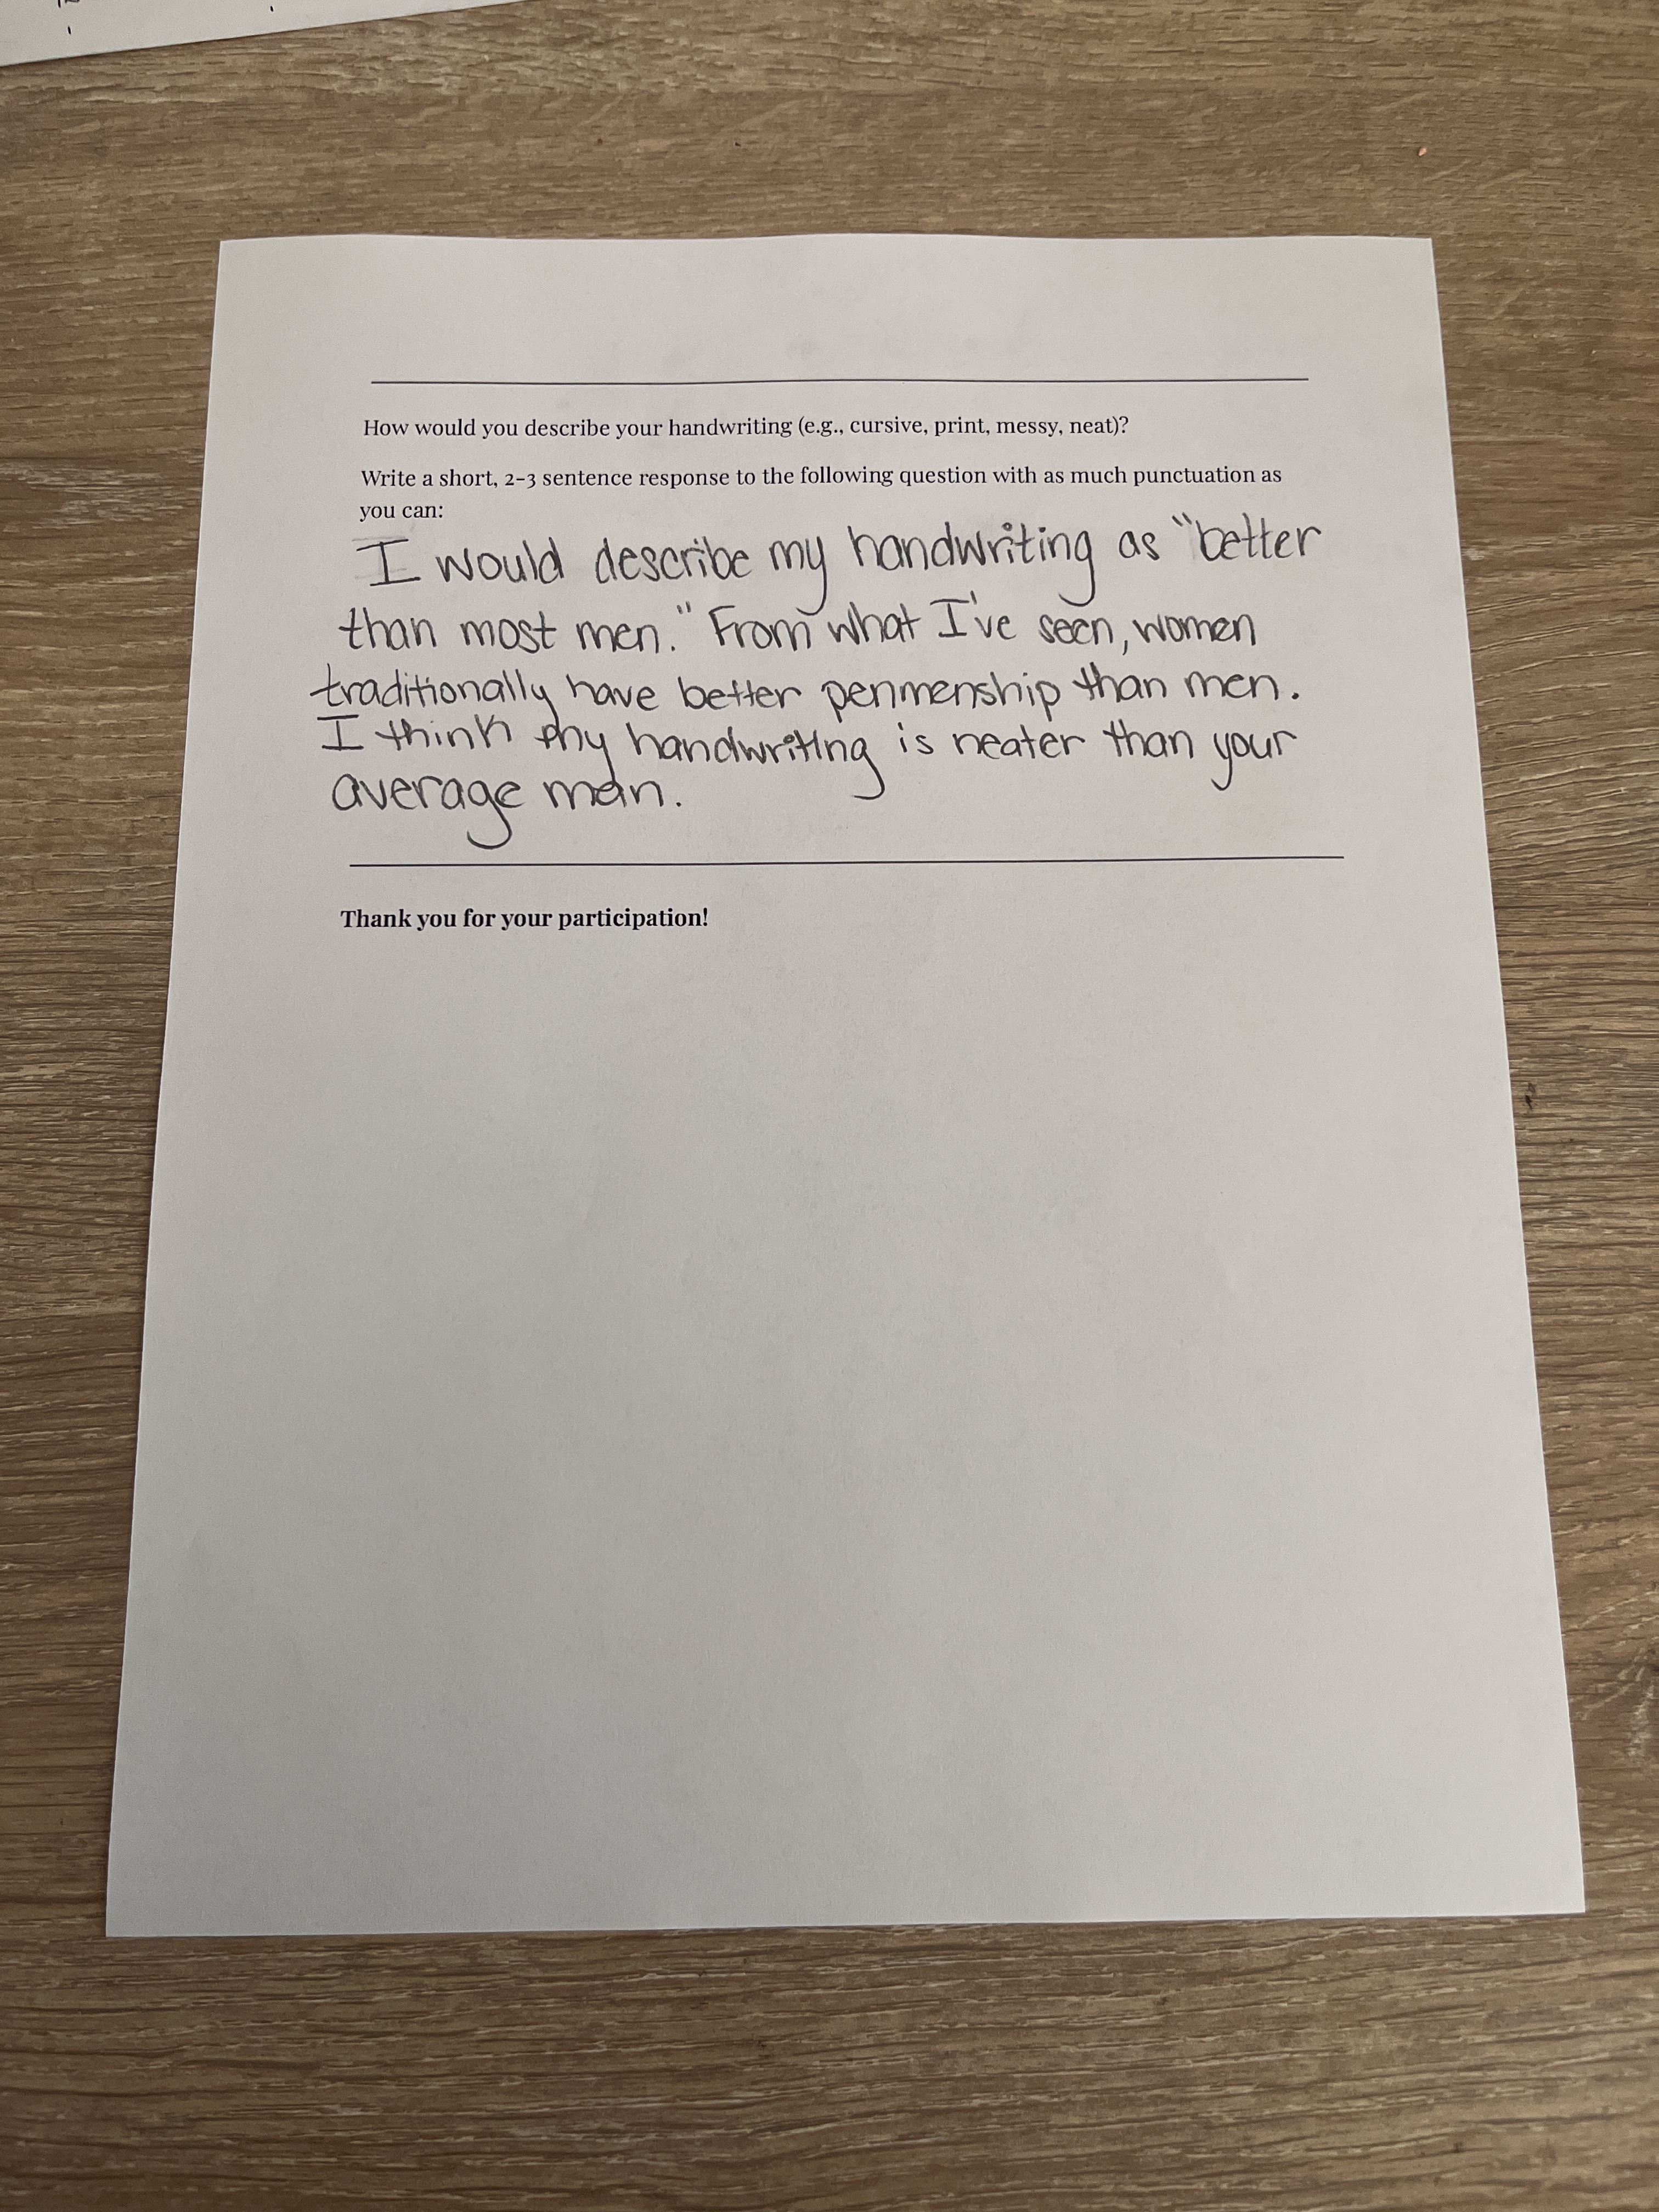 How would you describe your handwriting (e.g., cursive, print, messy, neat)?
Write a short, 2-3 sentence response to the following question with as much punctuation as
you can:
I would describe my handwriting as "better
than most men." From what I've seen, women
traditionally have better penmenship than men.
I think my handwriting is neater than your
average man.
Thank you for your participation!